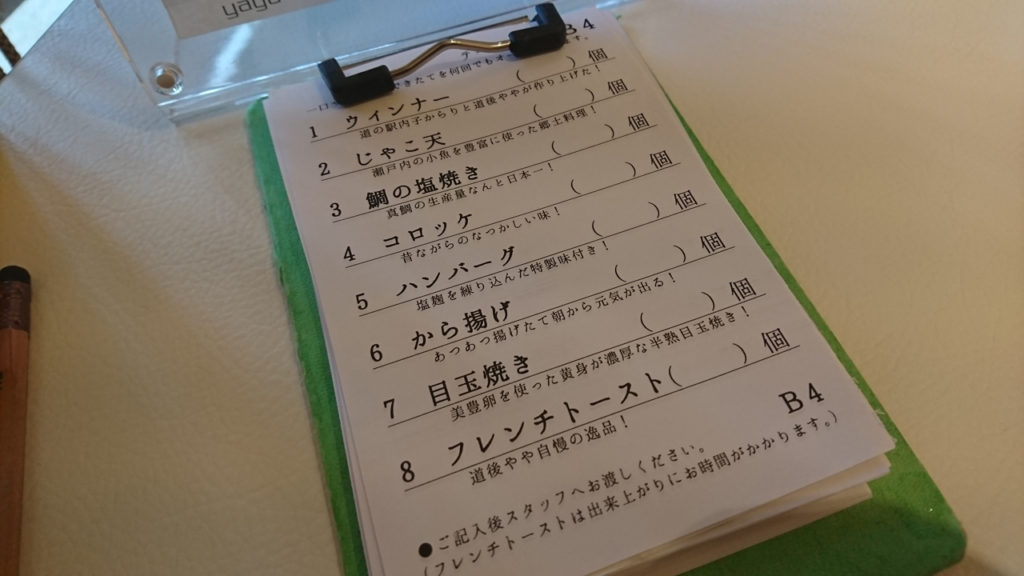 yaya
B4
できたてを何回でもオ す。
1 ウインナー ( ) 個
道の駅内子からりと道後ややが作り上げた!
2 じゃこ天 ( ) 個
瀬戸内の小魚を豊富に使った郷土料理!
3 鯛の塩焼き ( ) 個
真鯛の生産量なんと日本一!
4 コロッケ ( ) 個
昔ながらのなつかしい味!
5 ハンバーグ ( ) 個
塩麹を練り込んだ特製味付き!
6 から揚げ ( ) 個
あつあつ揚げたて朝から元気が出る!
7 目玉焼き ( ) 個
美豊卵を使った黄身が濃厚な半熟目玉焼き!
8 フレンチトースト( ) 個
道後やや自慢の逸品!
B4
●ご記入後スタッフへお渡しください。
(フレンチトーストは出来上がりにお時間がかかります。)